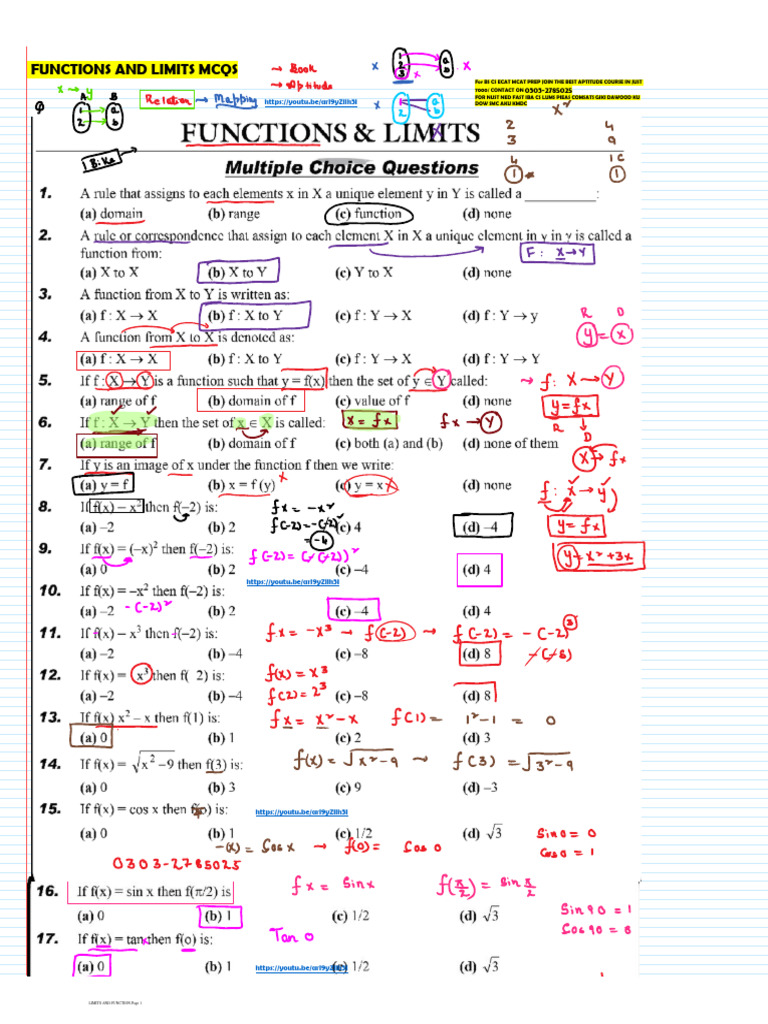 FUNCTIONS AND LIMITS MCQS
→ Book
→ Aptitude
For BI CS ECAT MCAT PREP JOIN THE BEST APTITUDE COURSE IN JUST
7000: CONTACT ON 0303-2785025
FOR NUST NED FAST IBA CS LUMS PIEAS COMSATS GIKI DAWOOD HU
DOW SMC AKU KMDC
x → y
A B
Relation → Mapping https://youtu.be/arl9yZllh5I
FUNCTIONS & LIMITS
Multiple Choice Questions
1. A rule that assigns to each elements x in X a unique element y in Y is called a __________ :
(a) domain (b) range (c) function (d) none
2. A rule or correspondence that assign to each element X in X a unique element in y in y is called a
function from: F : X → Y
(a) X to X (b) X to Y (c) Y to X (d) none
3. A function from X to Y is written as:
(a) f : X → X (b) f : X to Y (c) f : Y → X (d) f : Y → y
R D
y = x
4. A function from X to X is denoted as:
(a) f : X → X (b) f : X to Y (c) f : Y → X (d) f : Y → Y
5. If f : X → Y is a function such that y = f(x) then the set of y ∈ Y called: → f : X → Y
(a) range of f (b) domain of f (c) value of f (d) none
y = fx
R D
6. If f : X → Y then the set of x ∈ X is called: x = fx fx → Y
(a) range of f (b) domain of f (c) both (a) and (b) (d) none of them
x → fx
7. If y is an image of x under the function f then we write:
(a) y = f (b) x = f (y) (c) y = x (d) none
f : x → y
8. If f(x) – x² then f(–2) is: fx = -x²
f(-2) = -(-2)²
= -4
(a) –2 (b) 2 (c) 4 (d) –4
y = fx
9. If f(x) = (–x)² then f(–2) is: f(-2) = (-(-2))²
y = x² + 3x
(a) 0 (b) 2 (c) –4 (d) 4
https://youtu.be/arl9yZllh5I
10. If f(x) = –x² then f(–2) is:
(a) –2 -(-2)² (b) 2 (c) –4 (d) 4
11. If f(x) – x³ then f(–2) is: fx = -x³ → f(-2) → f(-2) = -(-2)³
(a) –2 (b) –4 (c) –8 (d) 8 -(-8)
12. If f(x) = x³ then f( 2) is: f(x) = x³
f(2) = 2³
(a) –2 (b) –4 (c) –8 (d) 8
13. If f(x) x² – x then f(1) is: fx = x² - x f(1) = 1² - 1 = 0
(a) 0 (b) 1 (c) 2 (d) 3
14. If f(x) = √x² – 9 then f(3) is: f(x) = √x² - 9 → f(3) = √3² - 9
(a) 0 (b) 3 (c) 9 (d) –3
15. If f(x) = cos x then f(o) is: https://youtu.be/arl9yZllh5I
(a) 0 (b) 1 (c) 1/2 (d) √3 Sin 0 = 0
(x) = Cos x → f(0) = Cos 0 Cos 0 = 1
0303-2785025
16. If f(x) = sin x then f(π/2) is fx = Sin x f(π/2) = Sin π/2
(a) 0 (b) 1 (c) 1/2 (d) √3 Sin 90 = 1
Cos 90 = 0
17. If f(x) = tan then f(o) is: Tan 0
(a) 0 (b) 1 https://youtu.be/arl9yZllh5I (c) 1/2 (d) √3
LIMITS AND FUNCTION Page 1